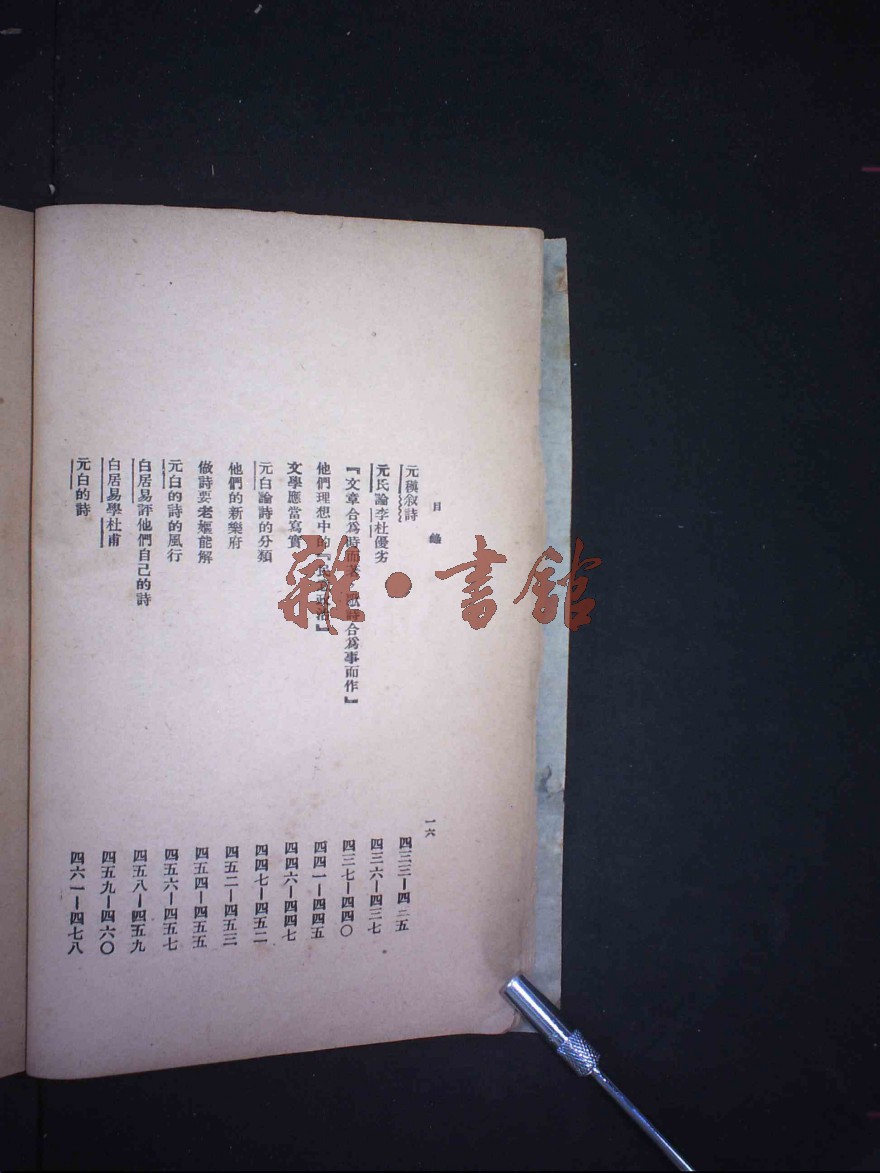 目錄
一六
元稹叙詩 四三三—四三五
元氏論李杜優劣 四三六—四三七
『文章合爲時而著，歌詩合爲事而作』 四三七—四四〇
他們理想中的『民 政治』 四四一—四四五
文學應當寫實 四四六—四四七
元白論詩的分類 四四七—四五二
他們的新樂府 四五二—四五三
做詩要老嫗能解 四五四—四五五
元白的詩的風行 四五六—四五七
白居易評他們自己的詩 四五八—四五九
白居易學杜甫 四五九—四六〇
元白的詩 四六一—四七八
雜·書館